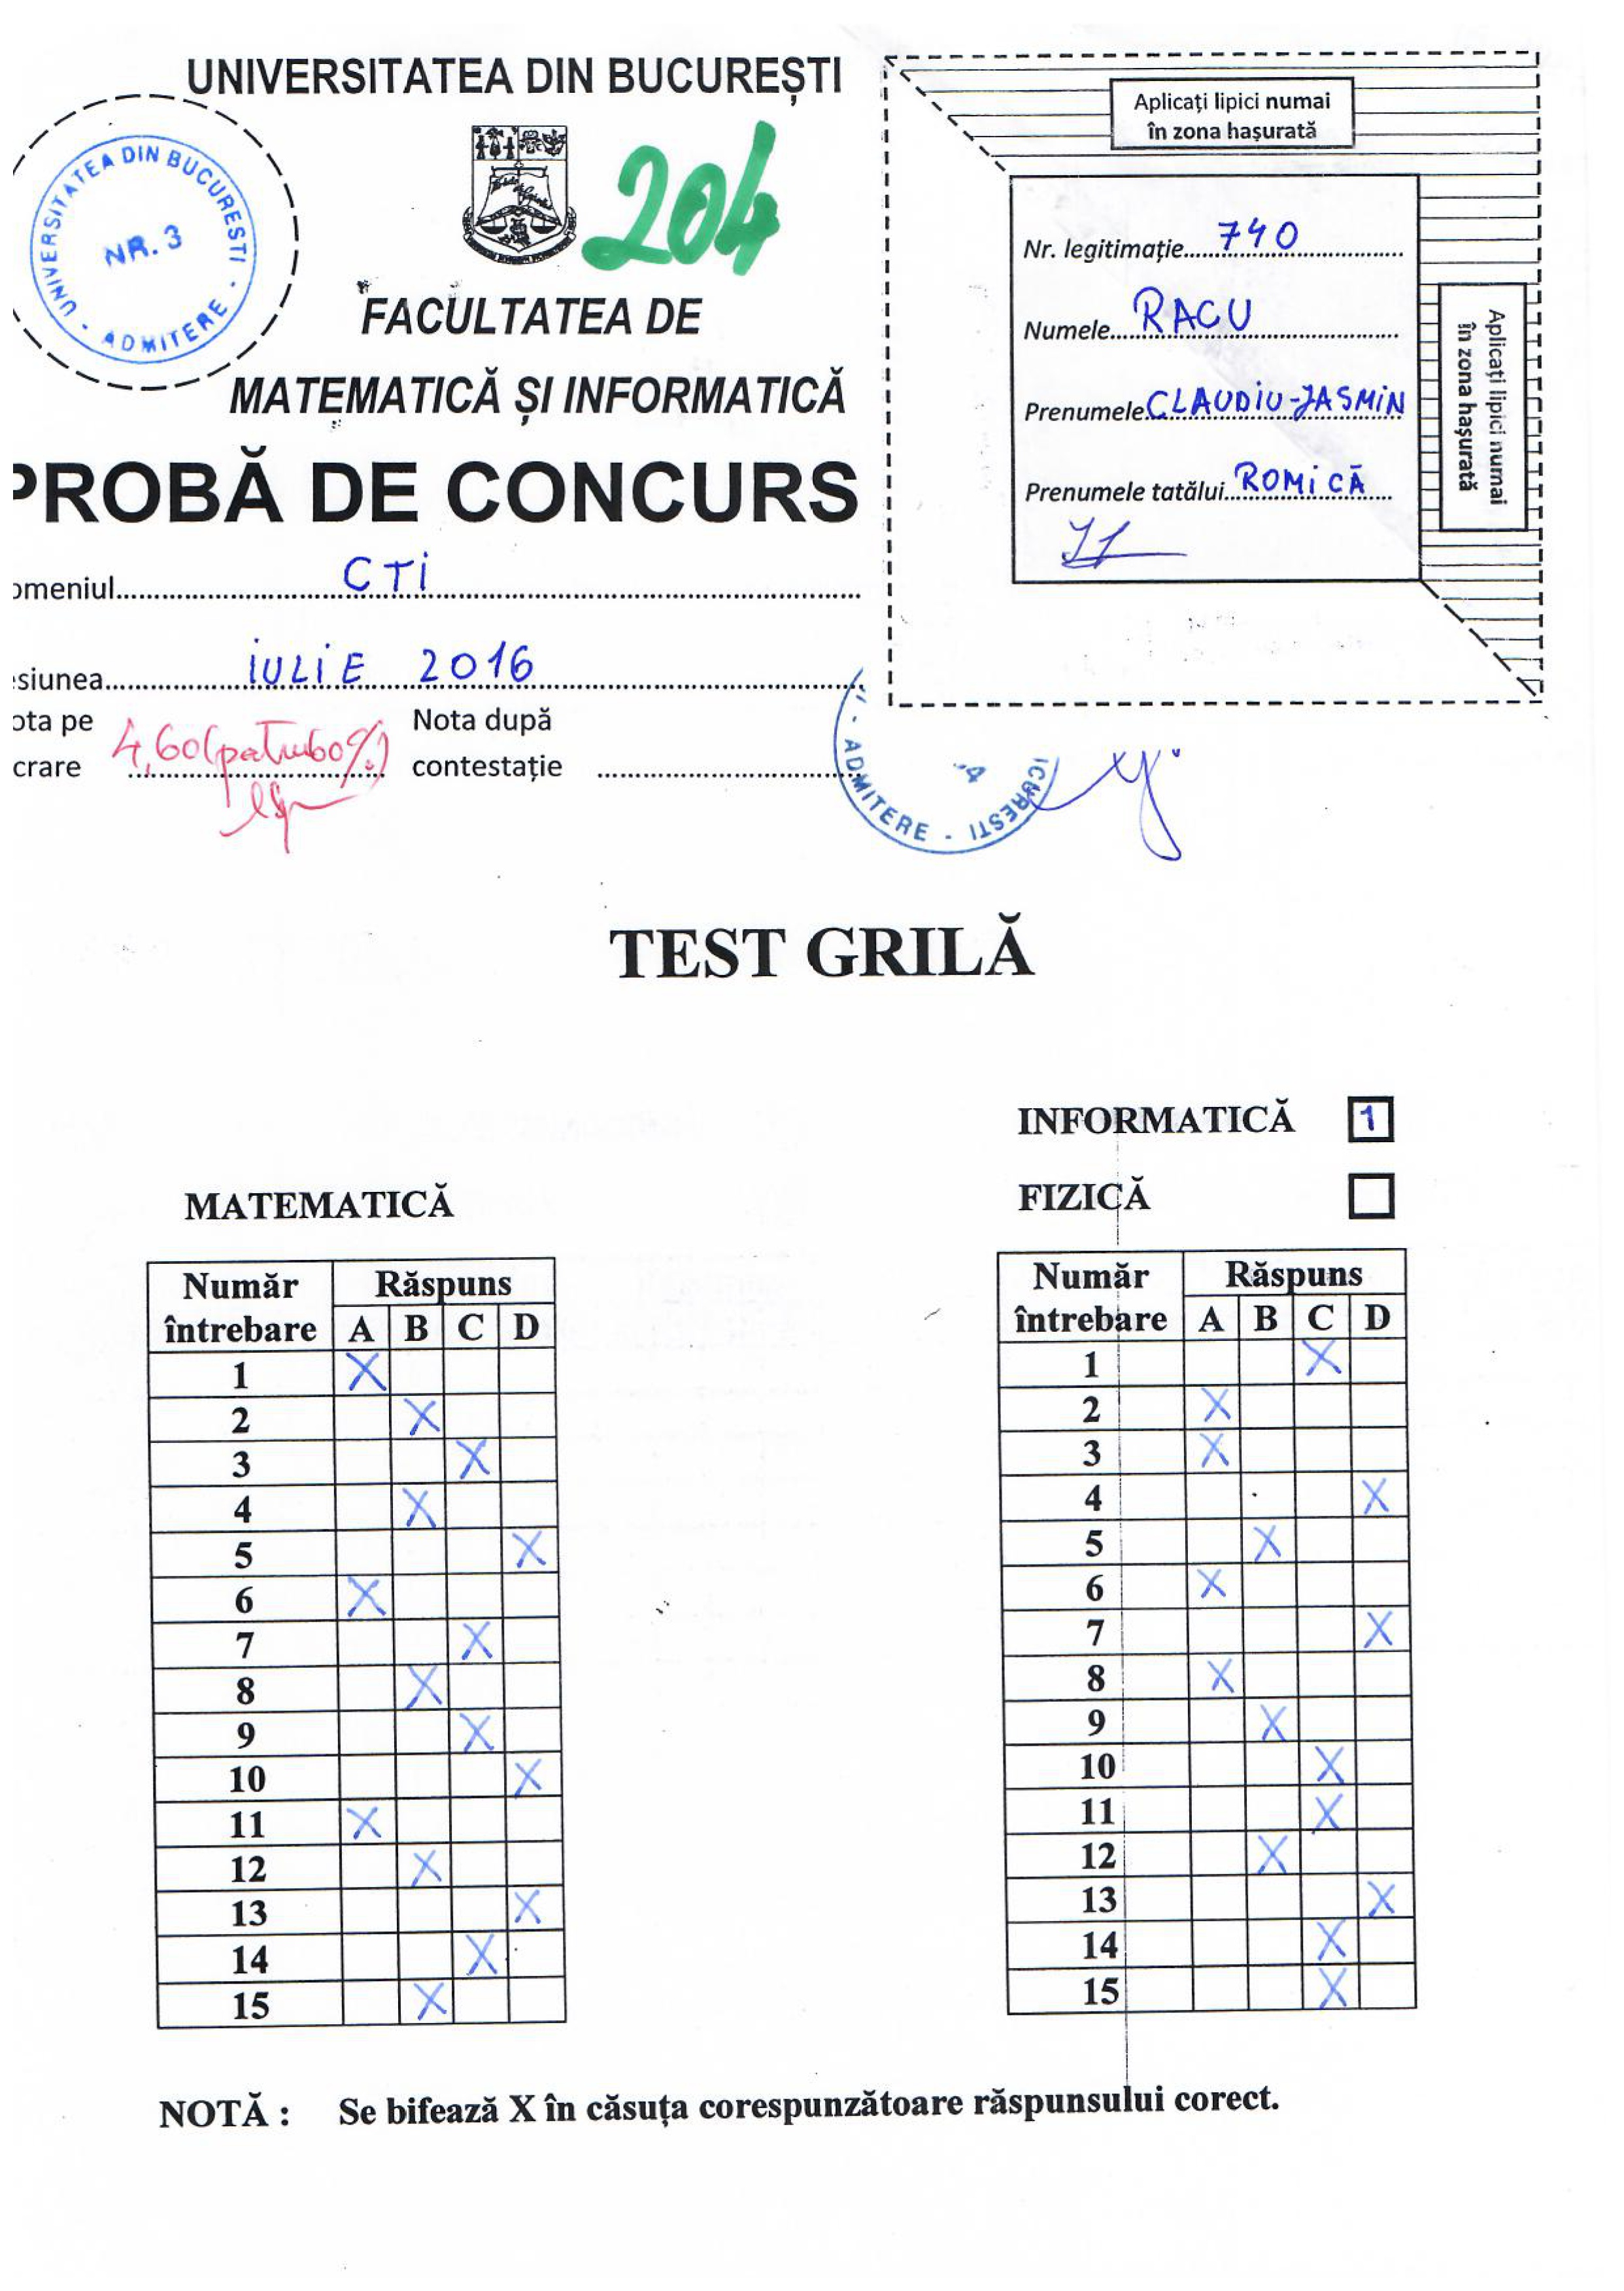 UNIVERSITATEA DIN BUCUREȘTI
UNIVERSITATEA DIN BUCURESTI - ADMITERE -
NR. 3
204
FACULTATEA DE
MATEMATICĂ ȘI INFORMATICĂ
PROBĂ DE CONCURS
omeniul CTI
siunea IULIE 2016
ota pe
crare 4,60
Nota după
contestație
Aplicați lipici numai
în zona hașurată
Nr. legitimație 740
Numele RACU
Prenumele CLAUDIU-JASMIN
Prenumele tatălui ROMICĂ
Aplicați lipici numai
în zona hașurată
- ADMITERE - ICURESTI
TEST GRILĂ
INFORMATICĂ 1
FIZICĂ
MATEMATICĂ
Număr întrebare Răspuns
A B C D
1 X
2 X
3 X
4 X
5 X
6 X
7 X
8 X
9 X
10 X
11 X
12 X
13 X
14 X
15 X
Număr întrebare Răspuns
A B C D
1 X
2 X
3 X
4 X
5 X
6 X
7 X
8 X
9 X
10 X
11 X
12 X
13 X
14 X
15 X
NOTĂ : Se bifează X în căsuța corespunzătoare răspunsului corect.